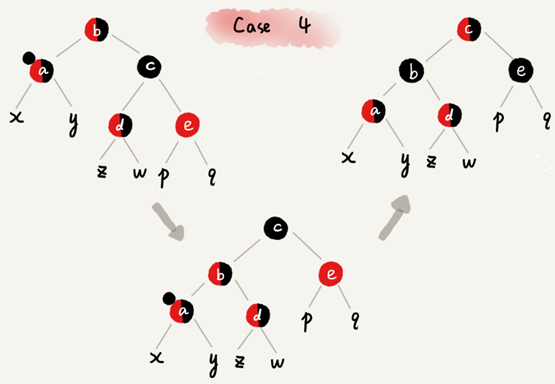 Case 4
b
a
c
x
y
d
e
z
w
p
q
c
b
e
a
d
p
q
x
y
z
w
c
b
e
a
d
p
q
x
y
z
w